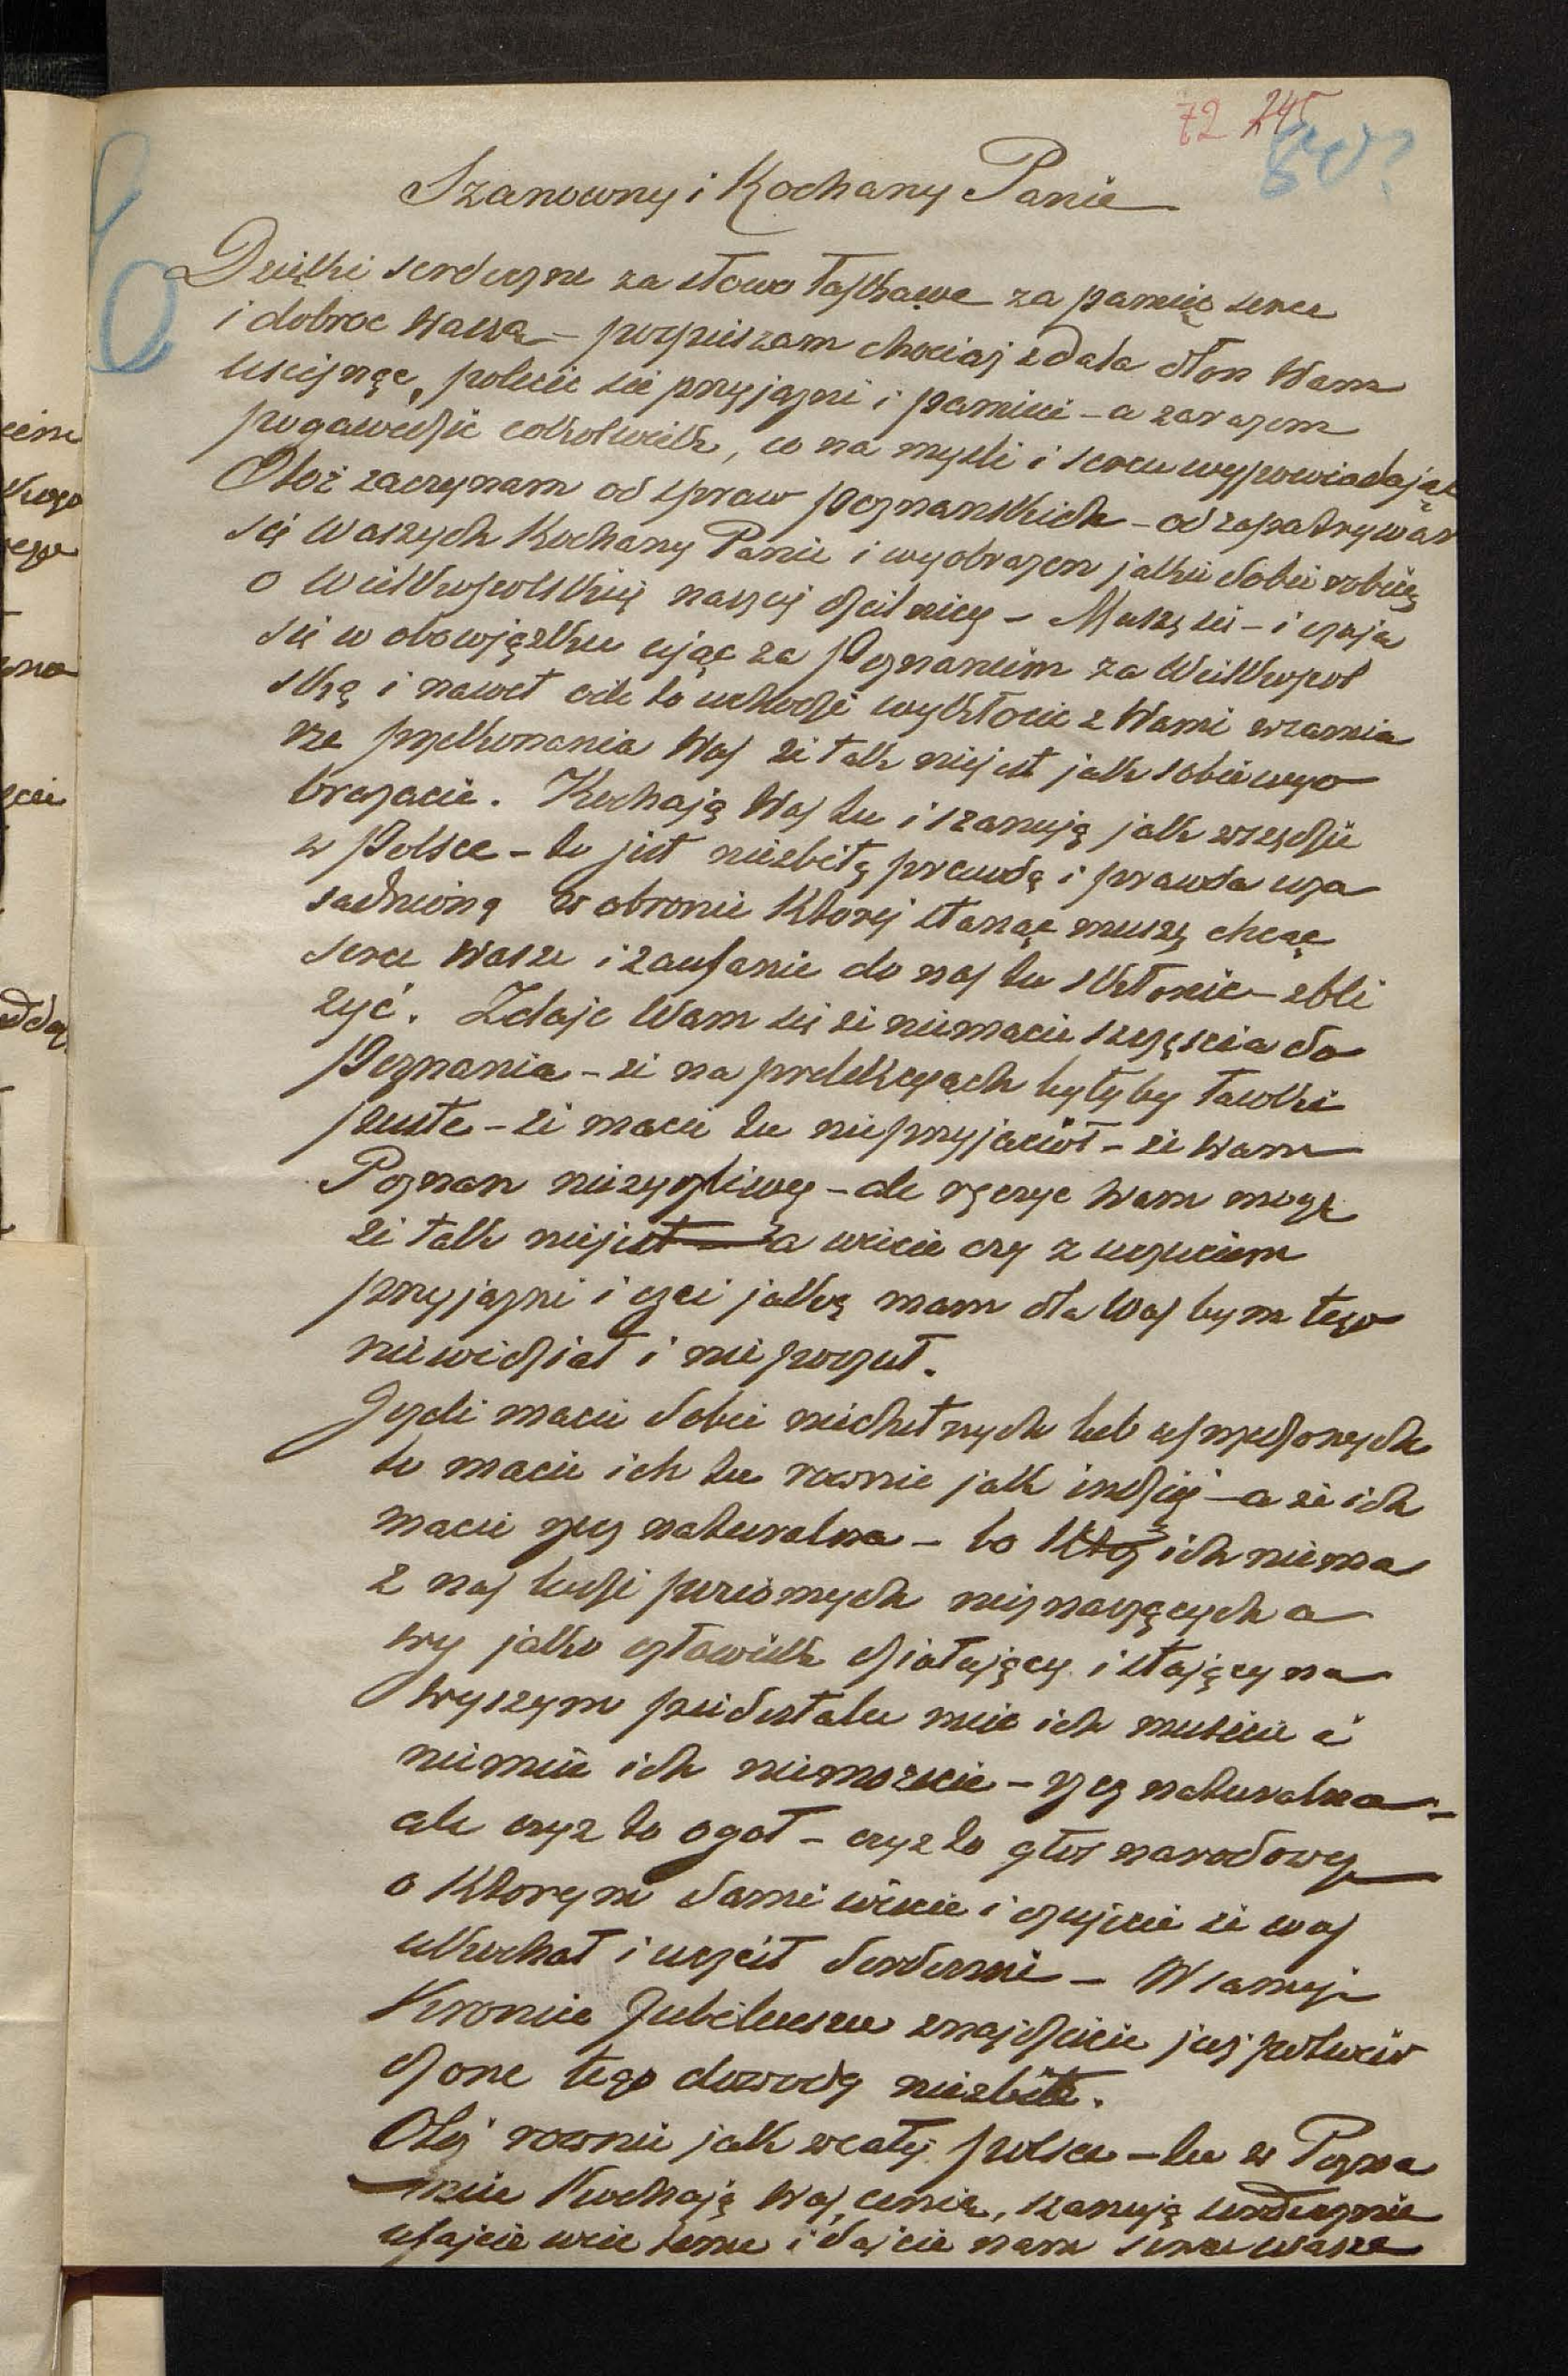 72 245
80?
Szanowny i Kochany Panie
Dzięki serdeczne za słowo łaskawe za pamięć serce
i dobroc waszą – pospieszam chociaj zdala dłon Wam
uscisnąc, polecic się przyjazni i pamieci – a zarazem
pogawedzić cotkolwiek, co na mysli i sercu wypowiadając
Otoż zaczynam od spraw poznanskich – od zapatrywan
się Waszych Kochany Panie i wyobrazen jakie sobie robicie
o Wielkopolskiej naszej dzielnicy – Muszę się – i czuje
się w obowiązku ująć za Poznaniem za Wielkopol
ską i nawet ode to uchodzi wykłócic z Wami wzamia
rze przekonania Was że tak niejest jak sobie wyo
brazacie. Kochają Was tu i szanują jak wszędzie
w Polsce – to jest niezbitą prawdą i prawda uza
sadnioną w obronie Ktorej stanąc muszę chcąc
serce Wasze i zaufanie do nas tu skłonic – zbli
zyć. Zdaje Wam się że niemacie szczęscia do
Poznania – że na prelekcyach byłyby ławki
puste – że macie tu nieprzyjaciół – że Wam
Poznan nieżyczliwy – ale ręczyc Wam mogę
że tak niejest a wiecie czy z uczuciem
przyjazni i czci jaką mam dla Was bym tego
niewidział i nie poczuł.
Jezeli macie sobie niechętnych lub uprzedzonych
to macie ich tu rownie jak indziej – a że ich
macie rzecz naturalna – bo Ktoż ich niema
z nas ludzi poziomych nieznaczących a
wy jako człowiek działający i stający na
wyszym piedestale miec ich musicie i
niemiec ich niemozecie – rzecz naturalna –
ale czyz to ogoł – czyz to głos narodowy
o Ktorym sami wiecie i czujecie że was
ukochał i uczcił serdecznie – W samej
Kronice Jubileuszu znajdziecie juz potwier
dzone tego dowody niezbite.
Otoż rownie jak wcałej polsce – tu w Pozna
niu Kochają Was, cenią, szanują serdecznie
ufajcie wiec temu i dajcie nam serce wasze